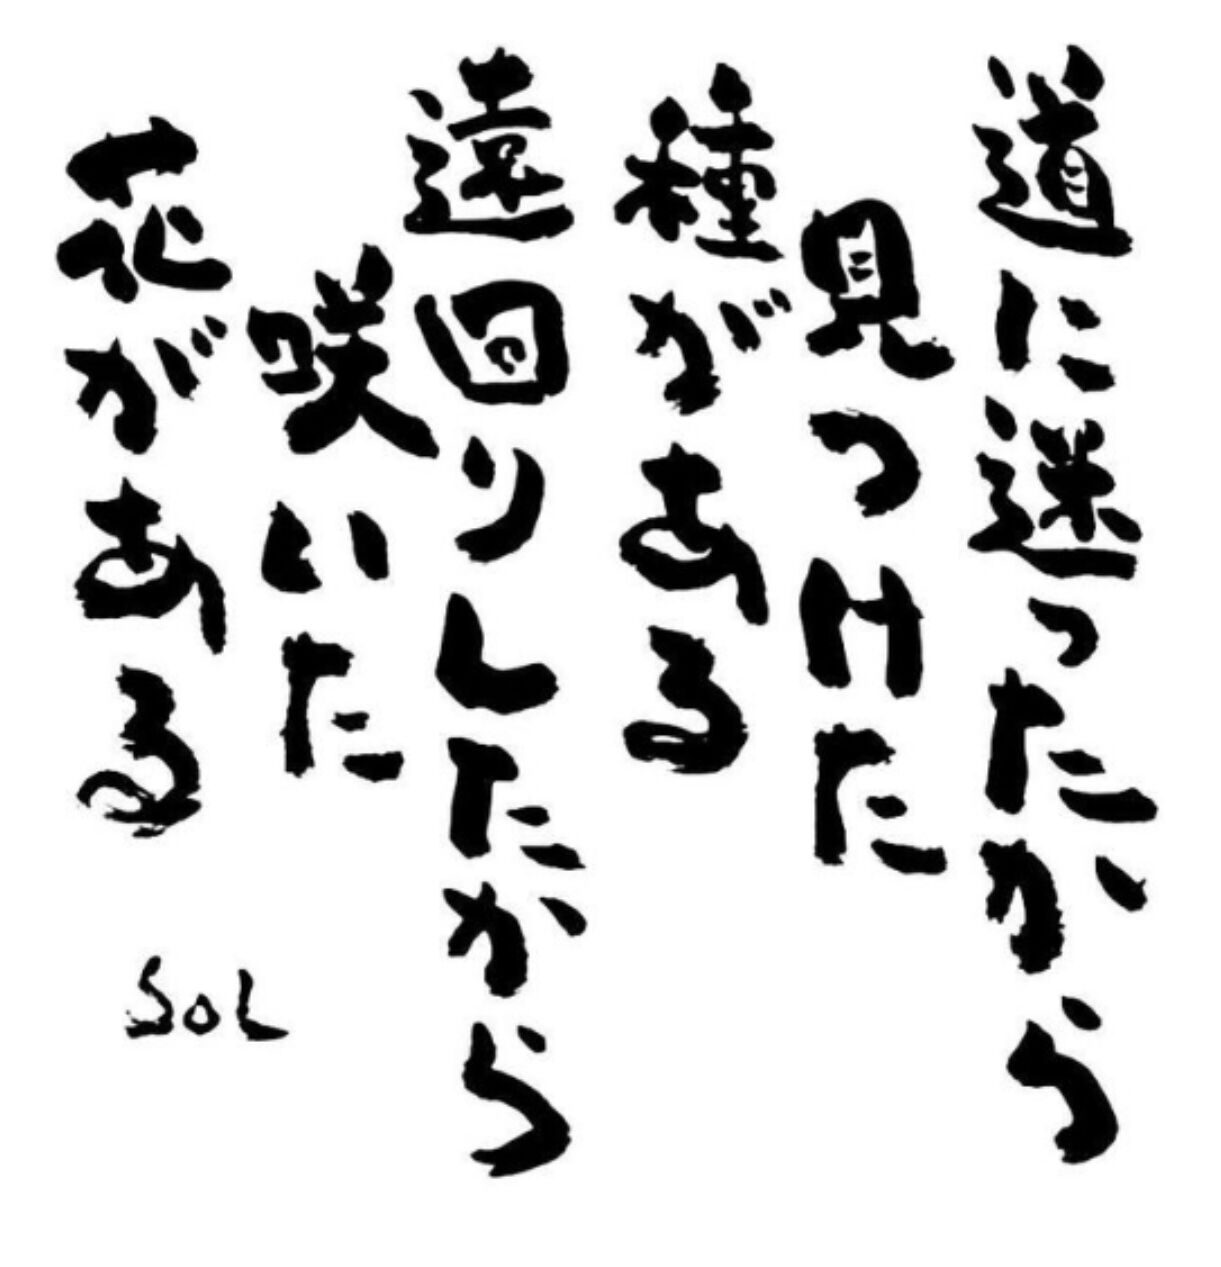 道に迷ったから
見つけた
種がある
遠回りしたから
咲いた
花がある
SOL